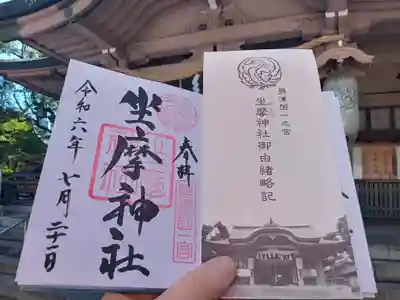 奉拝
坐摩神社
令和六年七月二十一日
摂津国一之宮
坐摩神社御由緒略記